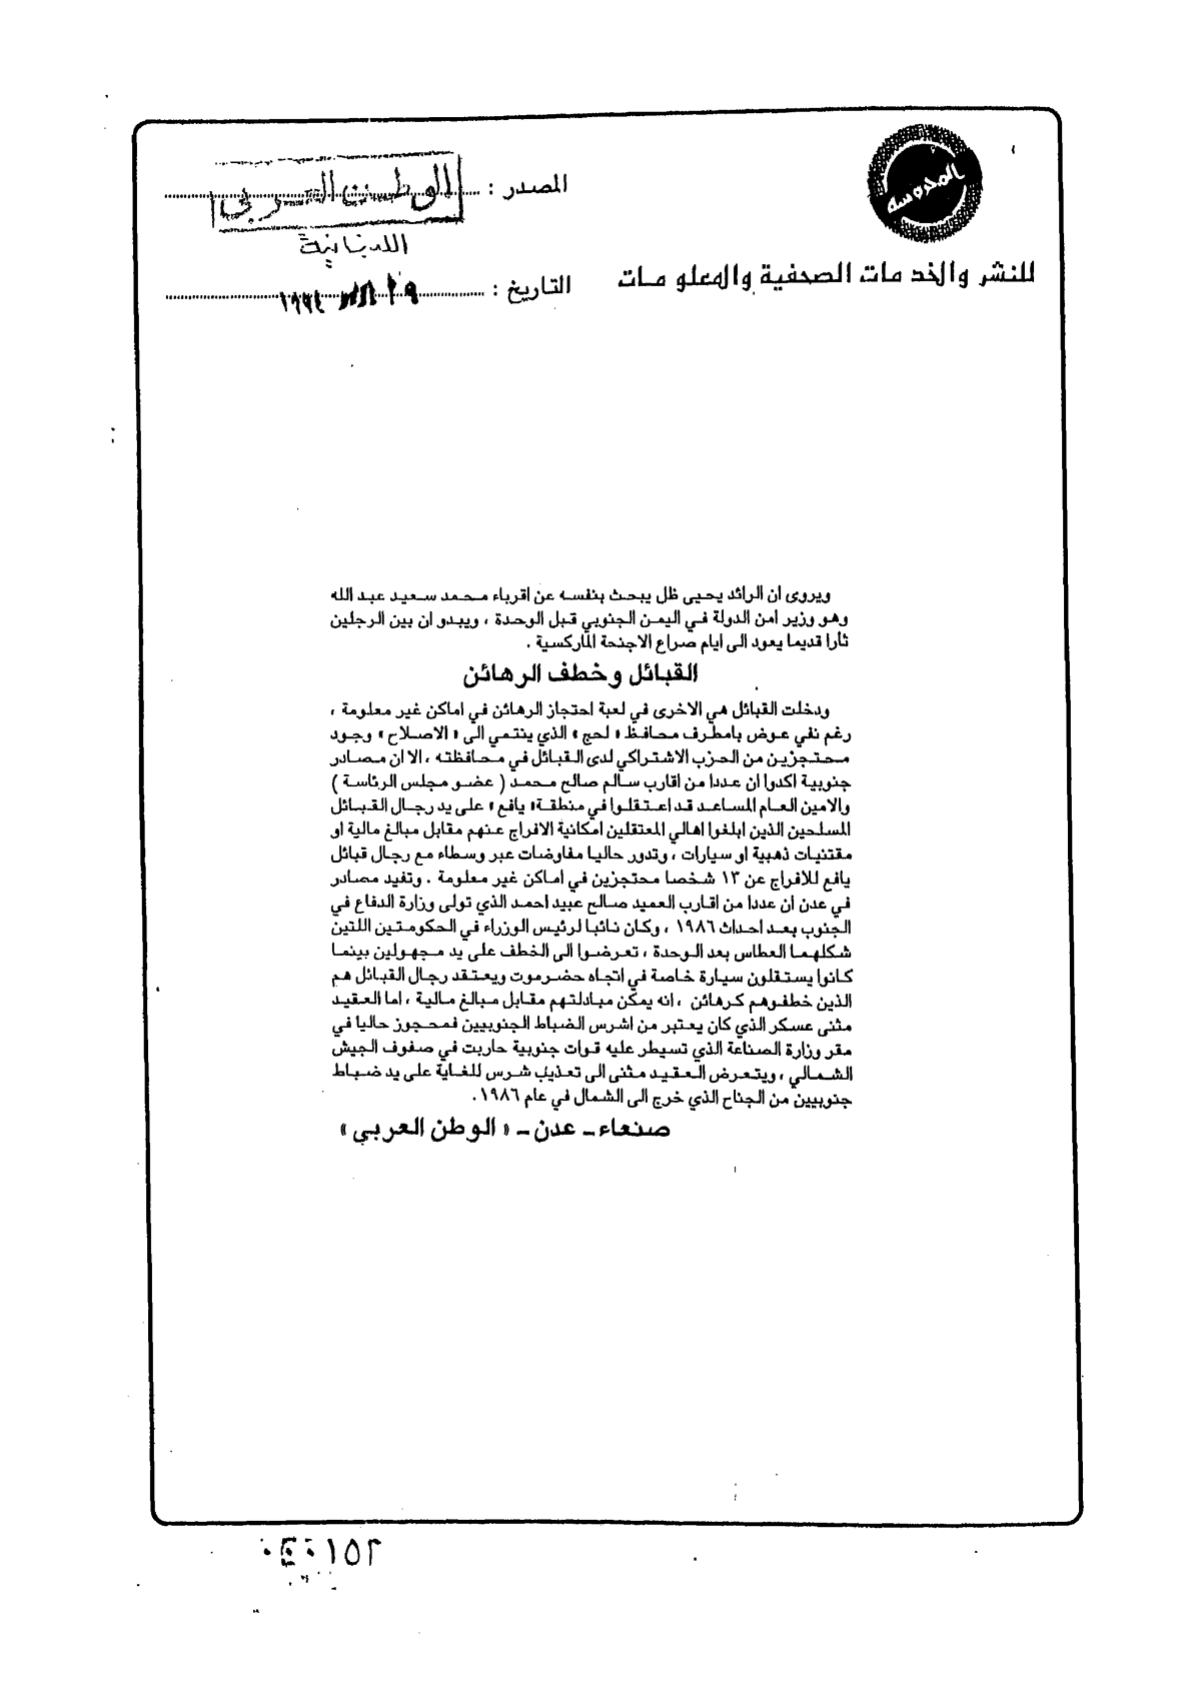 المحروسة
المصدر : الوطن العربي
اللبنانية
للنشر والخدمات الصحفية والمعلومات
التاريخ : ١٩٩٤
ويروى ان الرائد يحيى ظل يبحث بنفسه عن اقرباء محمد سعيد عبد الله
وهو وزير امن الدولة في اليمن الجنوبي قبل الوحدة ، ويبدو ان بين الرجلين
ثارا قديما يعود الى ايام صراع الاجنحة الماركسية .
القبائل وخطف الرهائن
ودخلت القبائل هي الاخرى في لعبة احتجاز الرهائن في اماكن غير معلومة ،
رغم نفي عوض بامطرف محافظ « لحج » الذي ينتمي الى « الاصلاح » وجود
محتجزين من الحزب الاشتراكي لدى القبائل في محافظته ، الا ان مصادر
جنوبية اكدوا ان عددا من اقارب سالم صالح محمد ( عضو مجلس الرئاسة )
والامين العام المساعد قد اعتقلوا في منطقة « يافع » على يد رجال القبائل
المسلحين الذين ابلغوا اهالي المعتقلين امكانية الافراج عنهم مقابل مبالغ مالية او
مقتنيات ذهبية او سيارات ، وتدور حاليا مفاوضات عبر وسطاء مع رجال قبائل
يافع للافراج عن ١٣ شخصا محتجزين في اماكن غير معلومة . وتفيد مصادر
في عدن ان عددا من اقارب العميد صالح عبيد احمد الذي تولى وزارة الدفاع في
الجنوب بعد احداث ١٩٨٦ ، وكان نائبا لرئيس الوزراء في الحكومتين اللتين
شكلهما العطاس بعد الوحدة ، تعرضوا الى الخطف على يد مجهولين بينما
كانوا يستقلون سيارة خاصة في اتجاه حضرموت ويعتقد رجال القبائل هم
الذين خطفوهم كرهائن ، انه يمكن مبادلتهم مقابل مبالغ مالية ، اما العقيد
مثنى عسكر الذي كان يعتبر من اشرس الضباط الجنوبيين فمحجوز حاليا في
مقر وزارة الصناعة الذي تسيطر عليه قوات جنوبية حاربت في صفوف الجيش
الشمالي ، ويتعرض العقيد مثنى الى تعذيب شرس للغاية على يد ضباط
جنوبيين من الجناح الذي خرج الى الشمال في عام ١٩٨٦ .
صنعاء ـ عدن ـ « الوطن العربي »